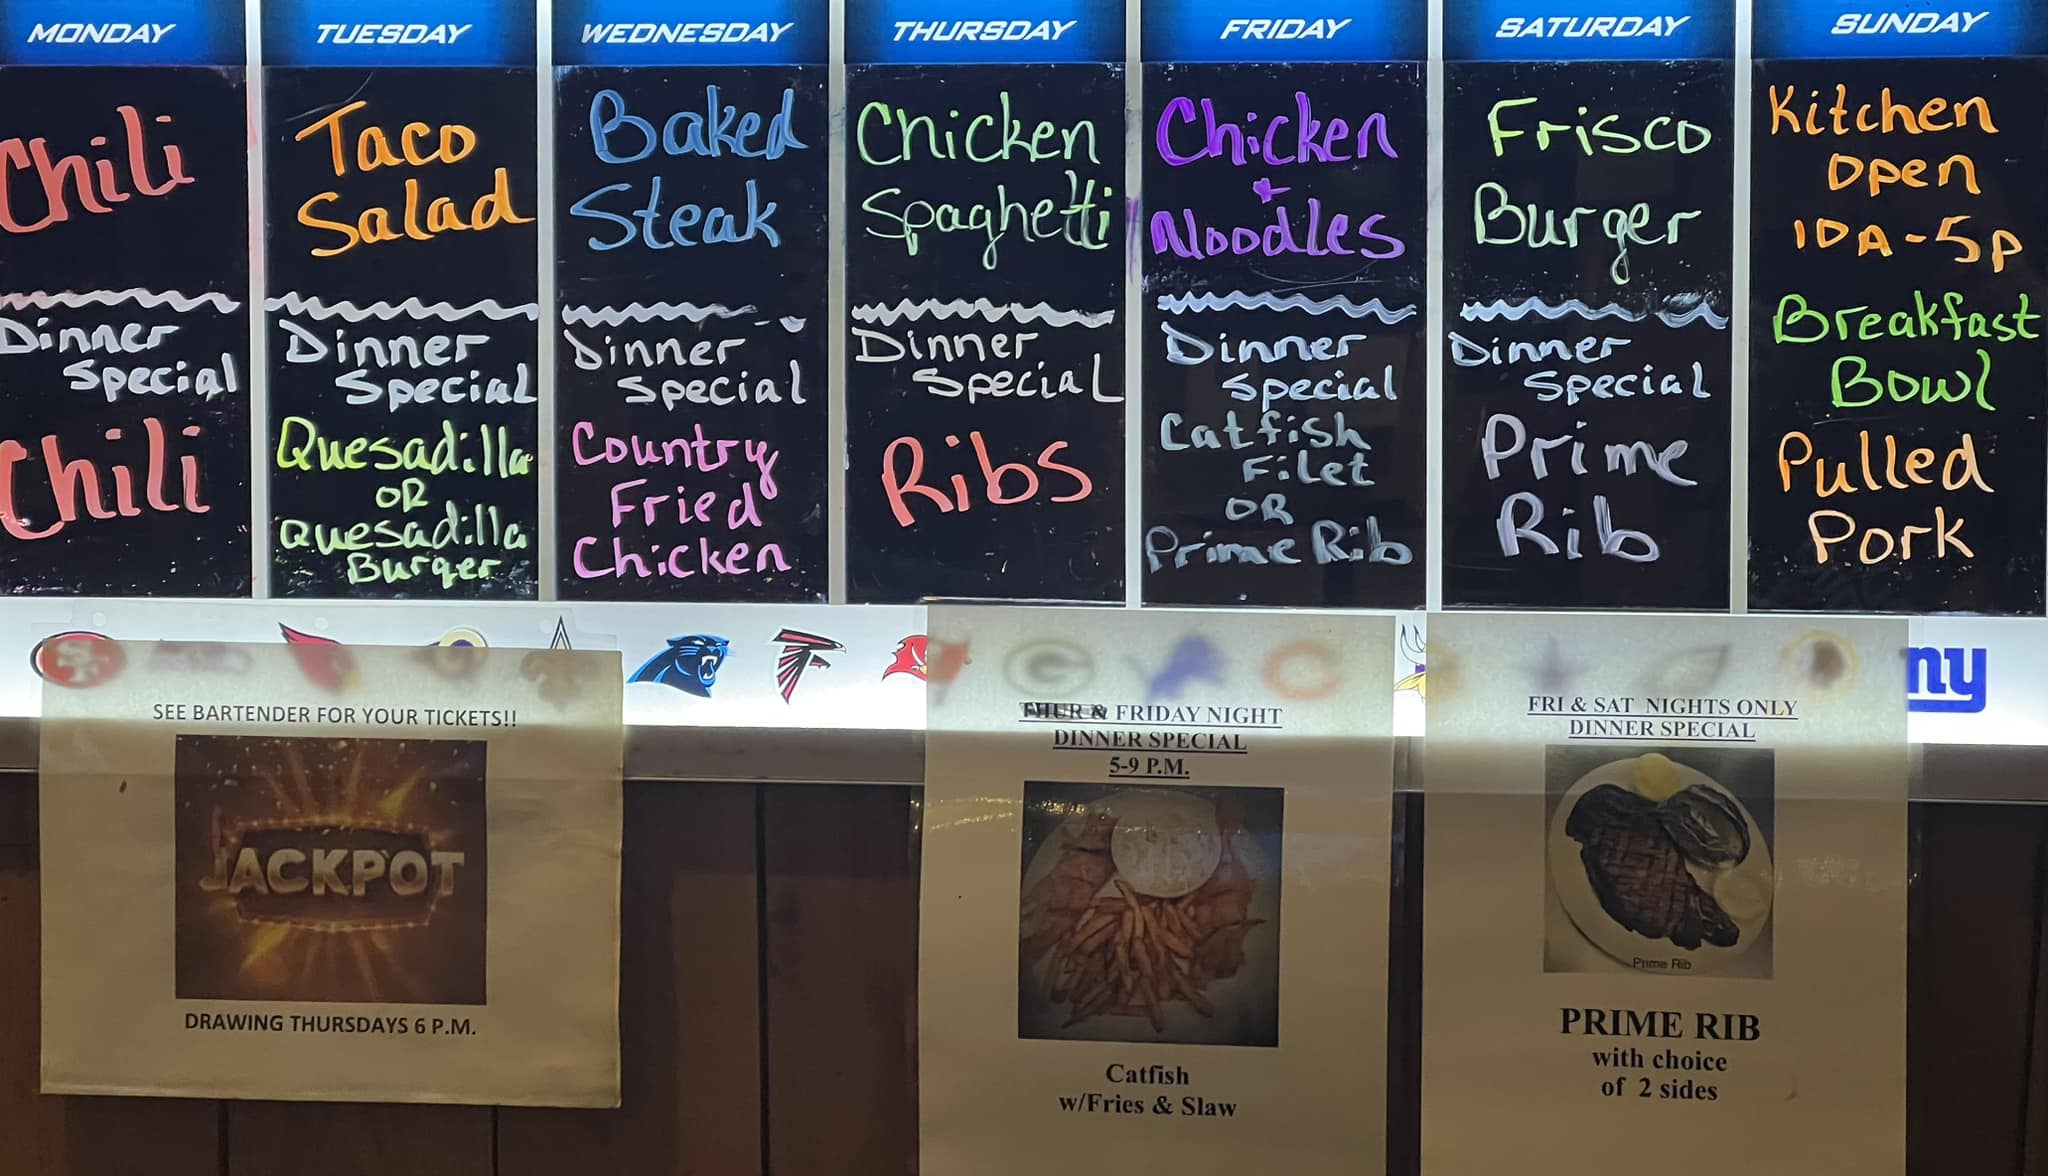 MONDAY
Chili
Dinner
Special
Chili
TUESDAY
Taco
Salad
Dinner
Special
Quesadilla
OR
Quesadilla
Burger
WEDNESDAY
Baked
Steak
Dinner
Special
Country
Fried
Chicken
THURSDAY
Chicken
Spaghetti
Dinner
Special
Ribs
FRIDAY
Chicken
+
Noodles
Dinner
Special
Catfish
Filet
OR
Prime Rib
SATURDAY
Frisco
Burger
Dinner
Special
Prime
Rib
SUNDAY
Kitchen
Open
10A-5P
Breakfast
Bowl
Pulled
Pork
SF
G
C
ny
SEE BARTENDER FOR YOUR TICKETS!!
JACKPOT
DRAWING THURSDAYS 6 P.M.
THUR & FRIDAY NIGHT
DINNER SPECIAL
5-9 P.M.
Catfish
w/Fries & Slaw
FRI & SAT NIGHTS ONLY
DINNER SPECIAL
Prime Rib
PRIME RIB
with choice
of 2 sides